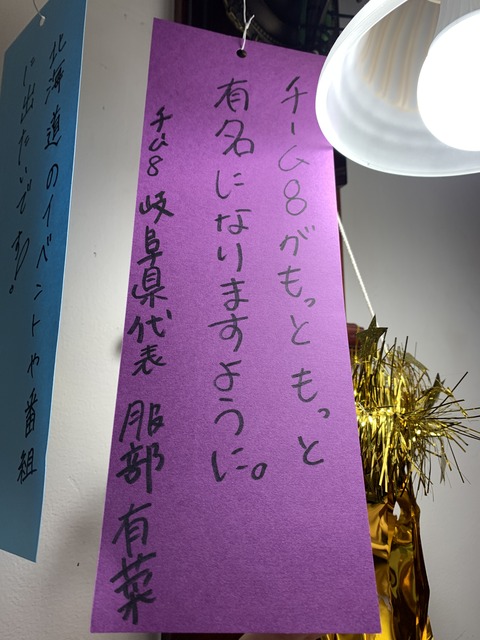 チーム8がもっともっと
有名になりますように。
チーム8 岐阜県代表 服部有菜
北海道のイベントや番組
に出たいです。